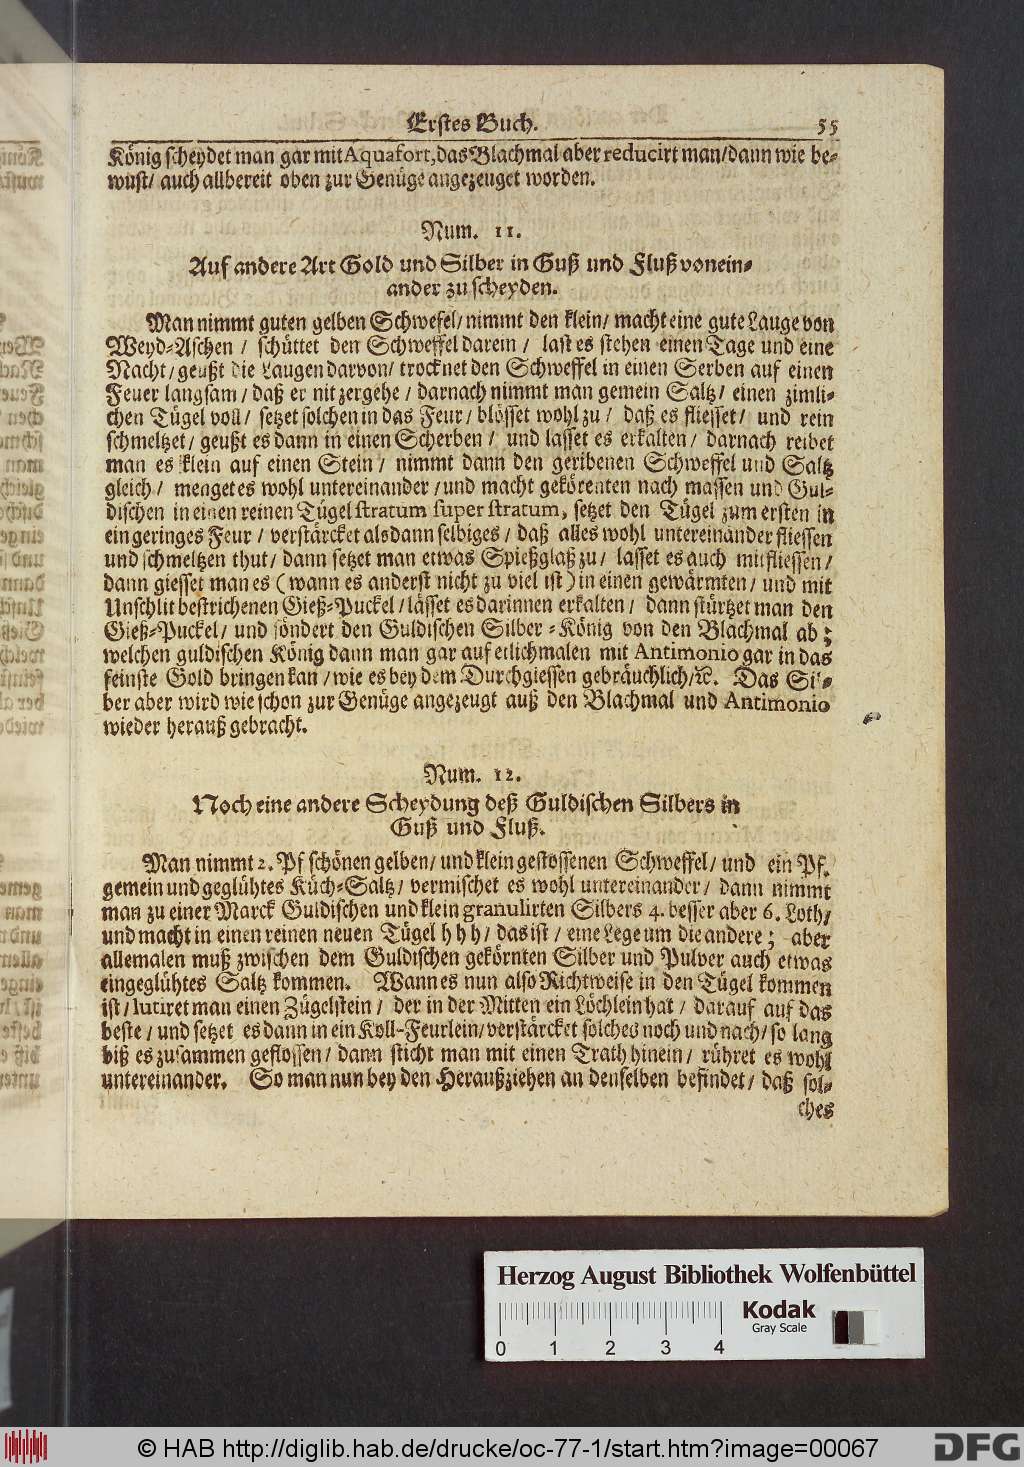 Erstes Buch. 55
König scheydet man gar mit Aquafort, das Blachmal aber reducirt man/ dann wie be-
wust/ auch allbereit oben zur Genüge angezeuget worden.
Num. 11.
Auf andere Art Gold und Silber in Guß und Fluß vonein-
ander zu scheyden.
Man nimmt guten gelben Schwefel/ nimmt den klein/ macht eine gute Lauge von
Weyd-Aschen / schüttet den Schweffel darein / last es stehen einen Tage und eine
Nacht/ geußt die Laugen darvon/ trocknet den Schweffel in einen Serben auf einen
Feuer langsam/ daß er nit zergehe / darnach nimmt man gemein Saltz/ einen zimli-
chen Tügel voll/ setzet solchen in das Feur/ blösset wohl zu / daß es fliesset/ und rein
schmeltzet/ geußt es dann in einen Scherben / und lasset es erkalten/ darnach reibet
man es klein auf einen Stein/ nimmt dann den geribenen Schweffel und Saltz
gleich/ menget es wohl untereinander/ und macht gekörenten nach massen und Gul-
dischen in einen reinen Tügel stratum super stratum, setzet den Tügel zum ersten in
ein geringes Feur/ verstärcket alsdann selbiges/ daß alles wohl untereinander fliessen
und schmeltzen thut/ dann setzet man etwas Spießglaß zu/ lasset es auch mitfliessen/
dann giesset man es (wann es anderst nicht zu viel ist) in einen gewärmten/ und mit
Unschlit bestrichenen Gieß-Puckel/ lässet es darinnen erkalten/ dann stürtzet man den
Gieß-Puckel/ und söndert den Guldischen Silber-König von den Blachmal ab;
welchen guldischen König dann man gar auf etlichmalen mit Antimonio gar in das
feinste Gold bringen kan/ wie es bey dem Durchgiessen gebräuchlich/ ꝛc. Das Sil-
ber aber wird wie schon zur Genüge angezeugt auß den Blachmal und Antimonio
wieder herauß gebracht.
Num. 12.
Noch eine andere Scheydung deß Guldischen Silbers in
Guß und Fluß.
Man nimmt 2. Pf schönen gelben/ und klein gestossenen Schweffel/ und ein Pf.
gemein und geglühtes Küch-Saltz/ vermischet es wohl untereinander/ dann nimmt
man zu einer Marck Guldischen und klein granulirten Silbers 4. besser aber 6. Loth/
und macht in einen reinen neuen Tügel h h h/ das ist/ eine Lege um die andere; aber
allemalen muß zwischen dem Guldischen gekörnten Silber und Pulver auch etwas
eingeglühtes Saltz kommen. Wann es nun also Richtweise in den Tügel kommen
ist/ lutiret man einen Zügelstein/ der in der Mitten ein Löchlein hat/ darauf auf das
beste/ und setzet es dann in ein Koll-Feurlein/ verstärcket solches noch und nach/ so lang
biß es zusammen geflossen/ dann sticht man mit einen Trath hinein/ rühret es wohl
untereinander. So man nun bey den Heraußziehen an denselben befindet/ daß sol-
ches
Herzog August Bibliothek Wolfenbüttel
Kodak
Gray Scale
0 1 2 3 4
© HAB http://diglib.hab.de/drucke/oc-77-1/start.htm?image=00067
DFG